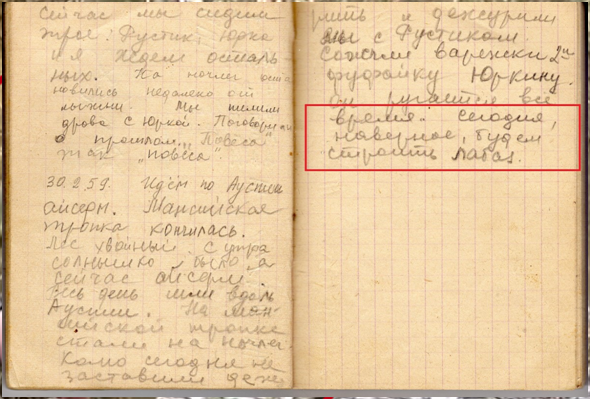 сейчас мы сидим
трое: Рустик, Юрка
и я. Ждем осталь-
ных. На ночлег оста
новились недалеко от
лыжни. Мы пилили
дрова с Юркой. Поговорили
о прошлом.
"повеса"
30.2.59. Идём по Ауспии
Мансийская
тропка кончилась.
Лес хвойный. С утра
солнышко было, а
сейчас
Весь день шли вдоль
Ауспии. На ман-
сийской тропке
стали на ночлег.
сегодня не
заставили дежу
рить и дежурили
мы с Рустиком.
Сожгли варежки и
фуфайку Юркину.
он ругается всё
время. сегодня,
наверное, будем
строить лабаз.